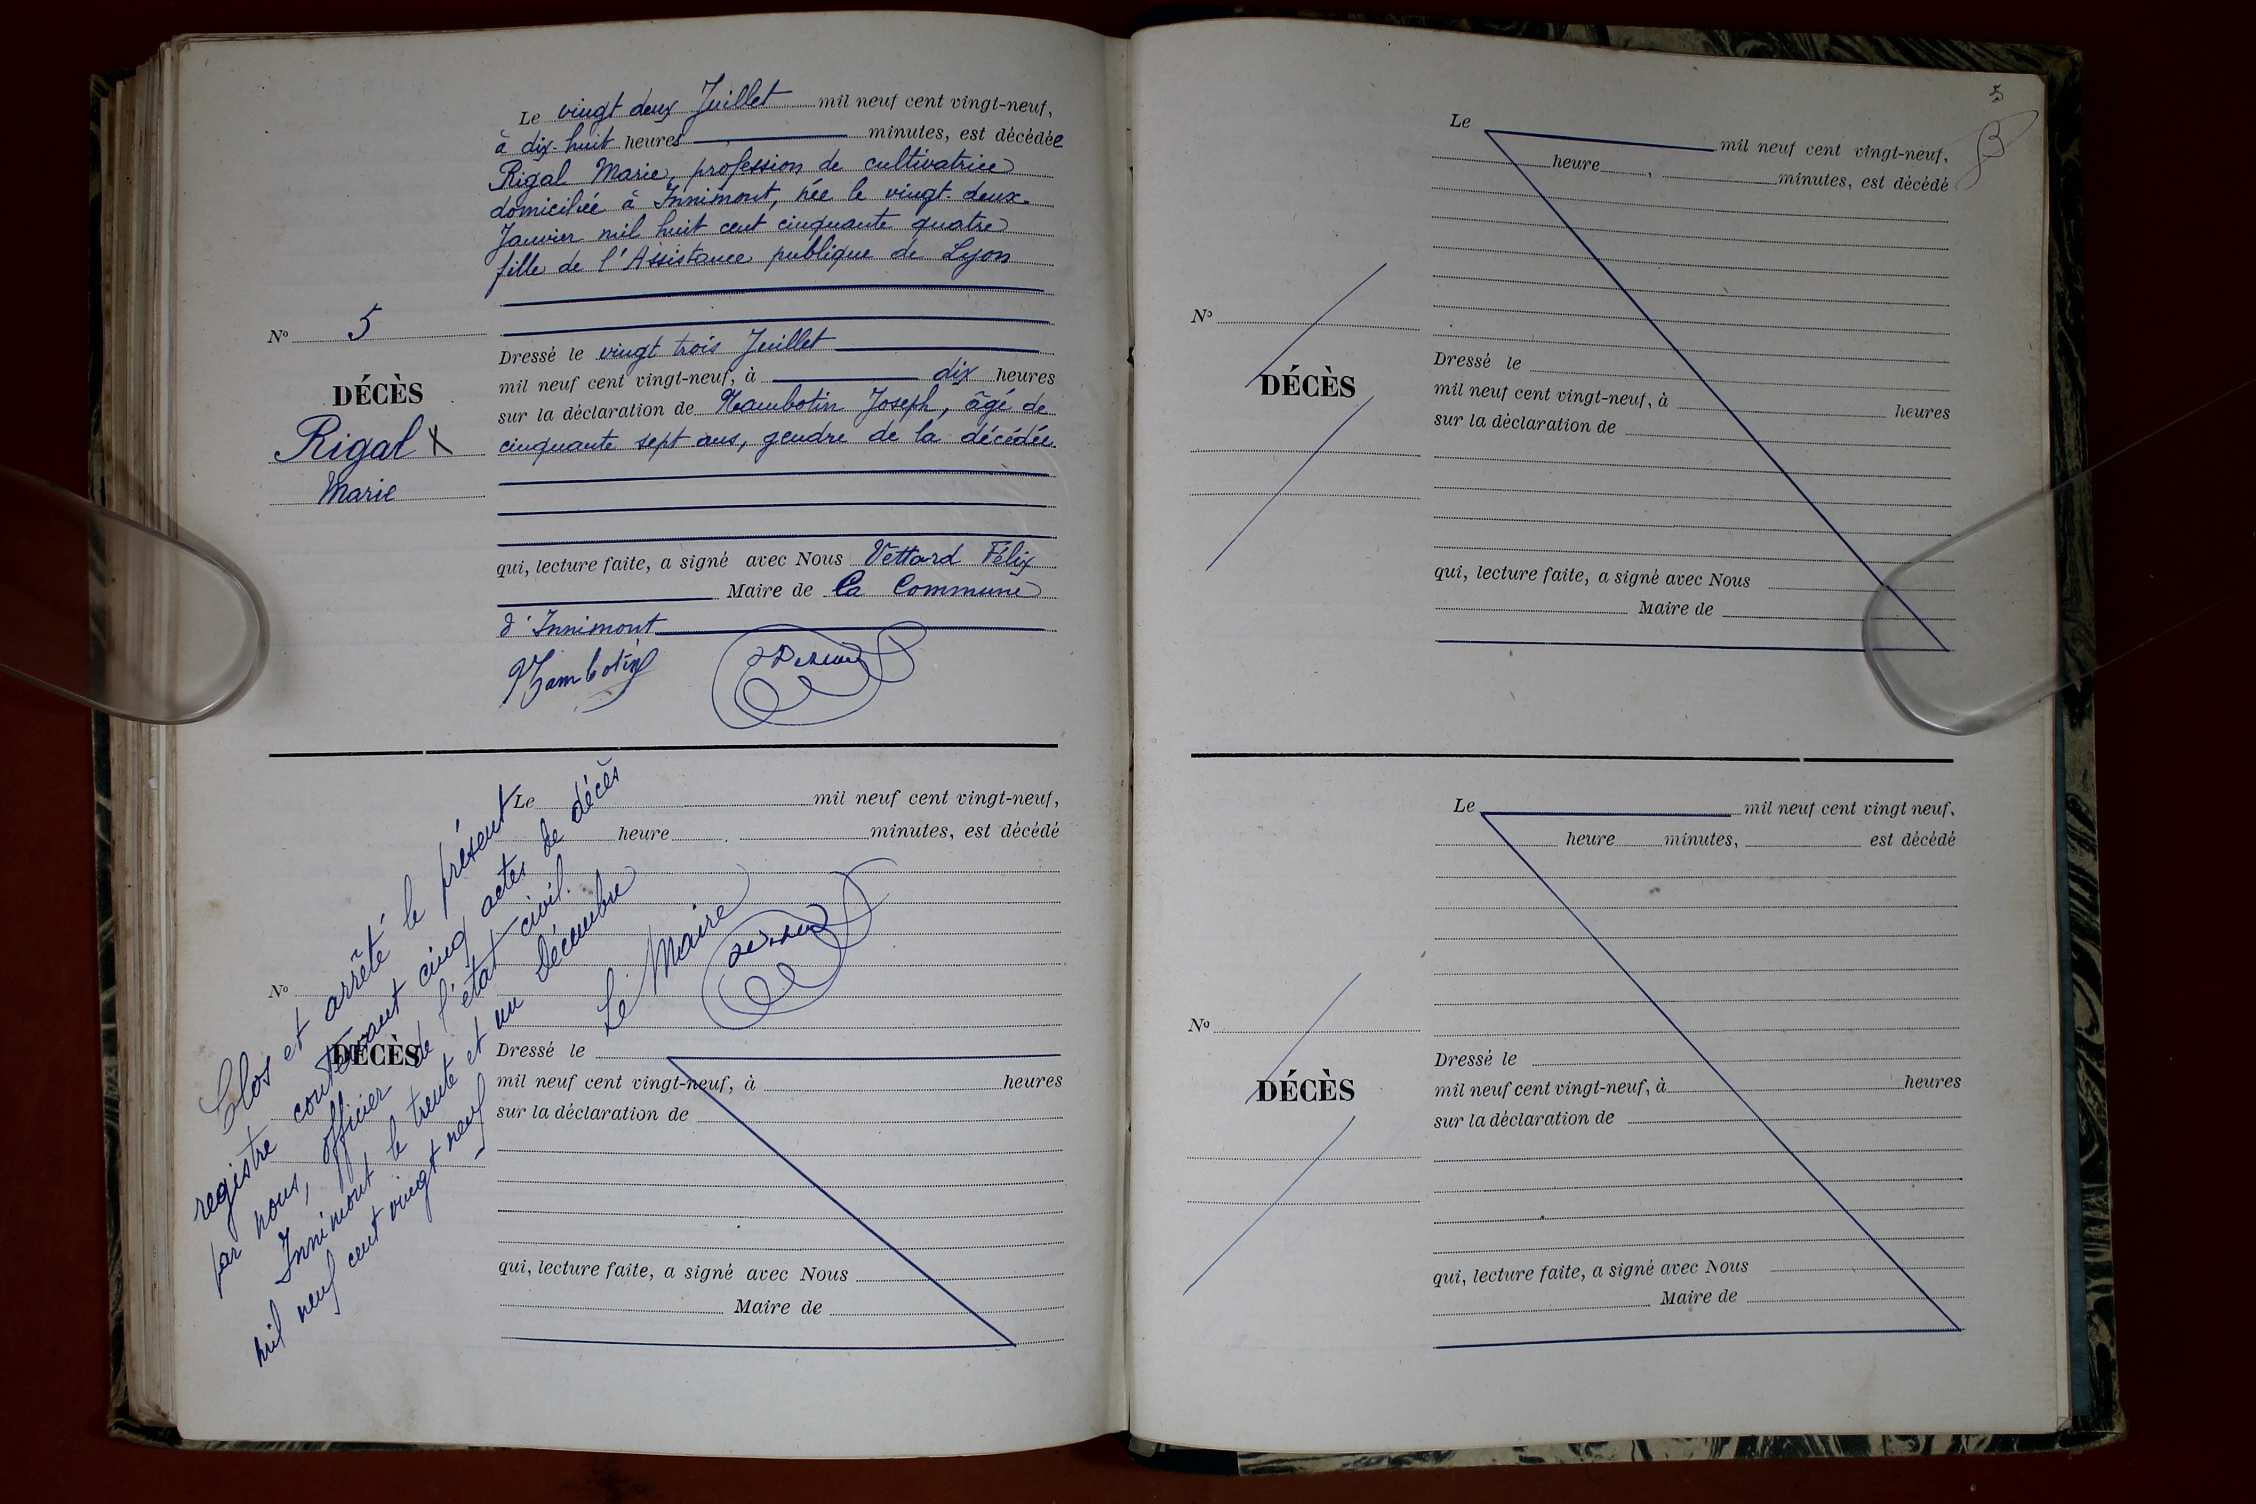 Le vingt deux Juillet mil neuf cent vingt-neuf,
à dix-huit heures minutes, est décédée
Rigal Marie, profession de cultivatrice
domiciliée à Innimont, née le vingt-deux
Janvier mil huit cent cinquante quatre
fille de l'Assistance publique de Lyon
N° 5
DÉCÈS
Rigal X
Marie
Dressé le vingt trois Juillet
mil neuf cent vingt-neuf, à dix heures
sur la déclaration de Hambotin Joseph, âgé de
cinquante sept ans, gendre de la décédée
qui, lecture faite, a signé avec Nous Vettard Félix
Maire de La Commune
d'Innimont
Le mil neuf cent vingt-neuf,
heure minutes, est décédé
N°
DÉCÈS
Clos et arrêté le présent
registre contenant cinq actes de décès
par nous, officier de l'état civil.
Innimont le trente et un Décembre
mil neuf cent vingt neuf
Le Maire
Dressé le
mil neuf cent vingt-neuf, à heures
sur la déclaration de
qui, lecture faite, a signé avec Nous
Maire de
5
Le mil neuf cent vingt-neuf.
heure , minutes, est décédé
N°
DÉCÈS
Dressé le
mil neuf cent vingt-neuf, à heures
sur la déclaration de
qui, lecture faite, a signé avec Nous
Maire de
Le mil neuf cent vingt neuf.
heure minutes, est décédé
N°
DÉCÈS
Dressé le
mil neuf cent vingt-neuf, à heures
sur la déclaration de
qui, lecture faite, a signé avec Nous
Maire de